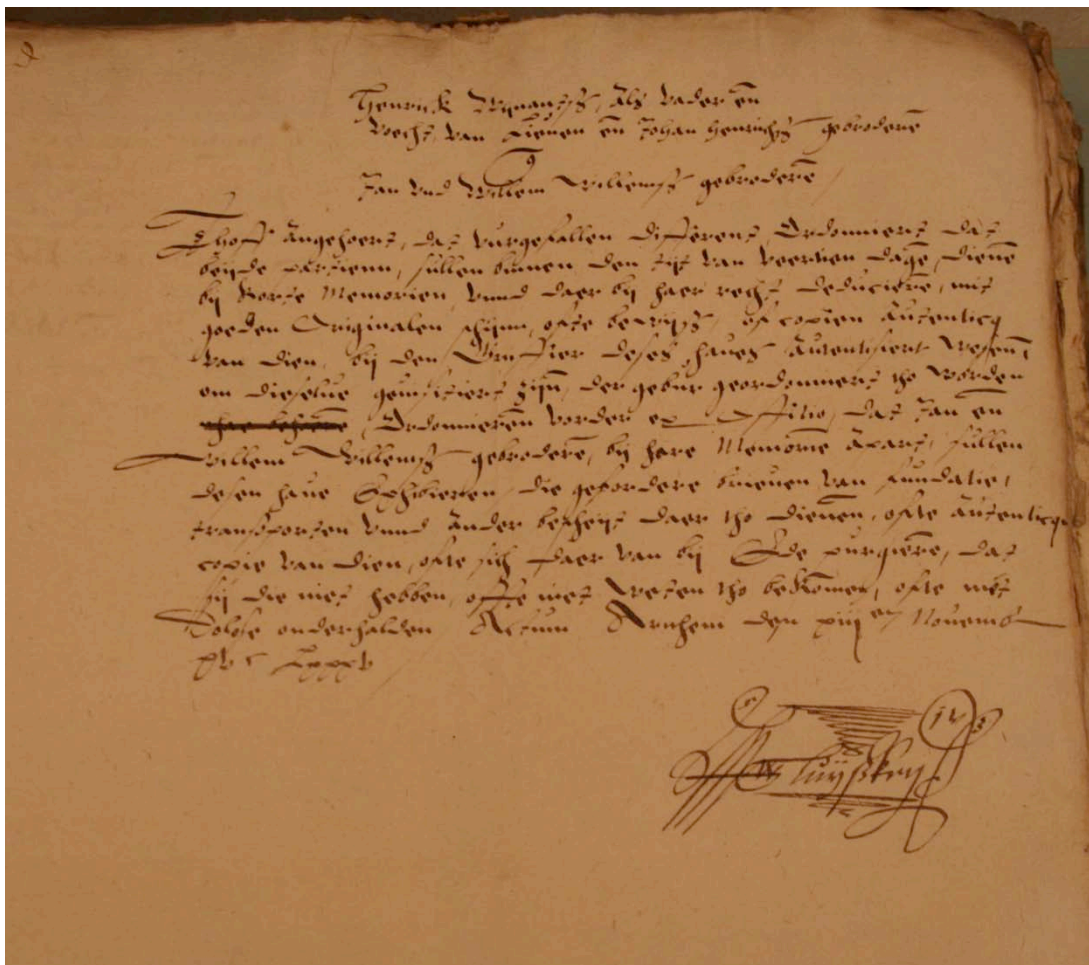 Henrick Wynantss, als vader en̄
voecht van Lienen en̄ Johan Henrichss gebroderē
Jan vnd Willem Willemss gebroderē
Thoff angehoert, dat vurgefallen different, Ordonniert dat
beijde partienn, sullen binnen den tijt van veertien dagē, dienē
bij korte Memorien, vnnd daer bij haer recht deducierē, mit
goeden Originalen schijnn, ofte bewijss, off copien autenticq
van dien, bij den Griffier deses haues autentisiert wesende
om dieselue gevisitiert zijn̄, der gebur geordonniert tho worden
Ordonnierēn vorder ex officio, dat Jan en̄
Willem Willemss gebroderē, bij hare Memorie apart, sullen
desen haue Exhibieren, die gefordere brieuen van fundatie,
transporten vnnd ander bescheijt daer tho dienen, ofte autenticque
copie van dien, ofte sich daer van bij Ede purgierē, dat
sij die niet hebben, offte niet weten tho bekomen, ofte niet
dolose onderhalden Actum Arnhem den xiij en Nouemb
xvc Lxxxv